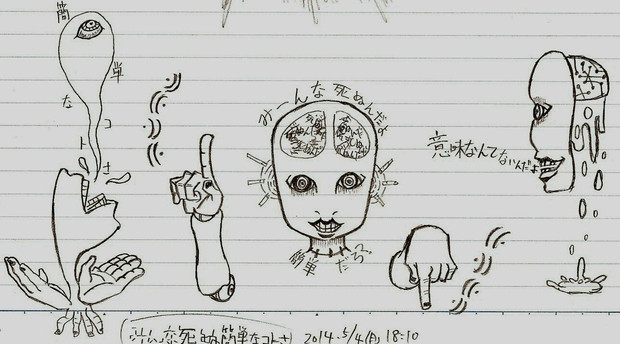 簡単なコトさ
みーんな死ぬんだよ
意味なんてないんだよ
簡単だろ?
死ぬ簡単なコトさ 2014.5/4(月) 18:10